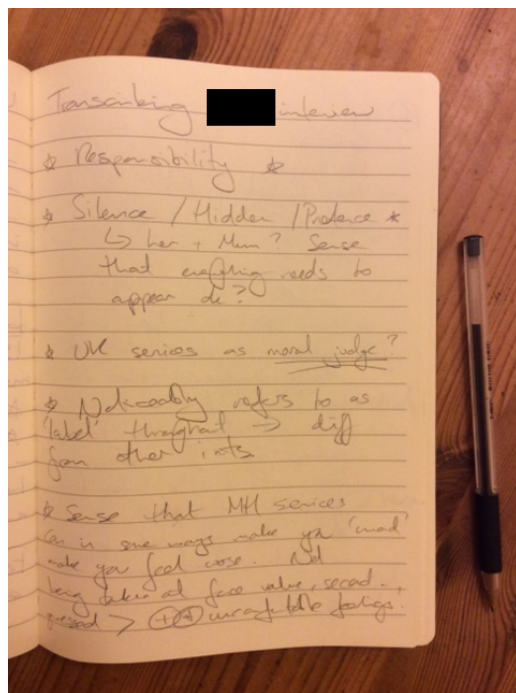 Transcribing interview
* Responsibility *
* Silence / Hidden / Pretence *
↳ her + Mum? Sense
that everything needs to
appear ok?
* UK services as moral judge?
* Noticeably refers to as
'label' throughout → diff
from other ints
* Sense that MH services
can in some ways make you 'mad'
make you feel worse. Not
being taken at face value, second
guessed > ++ uncomfortable feelings.